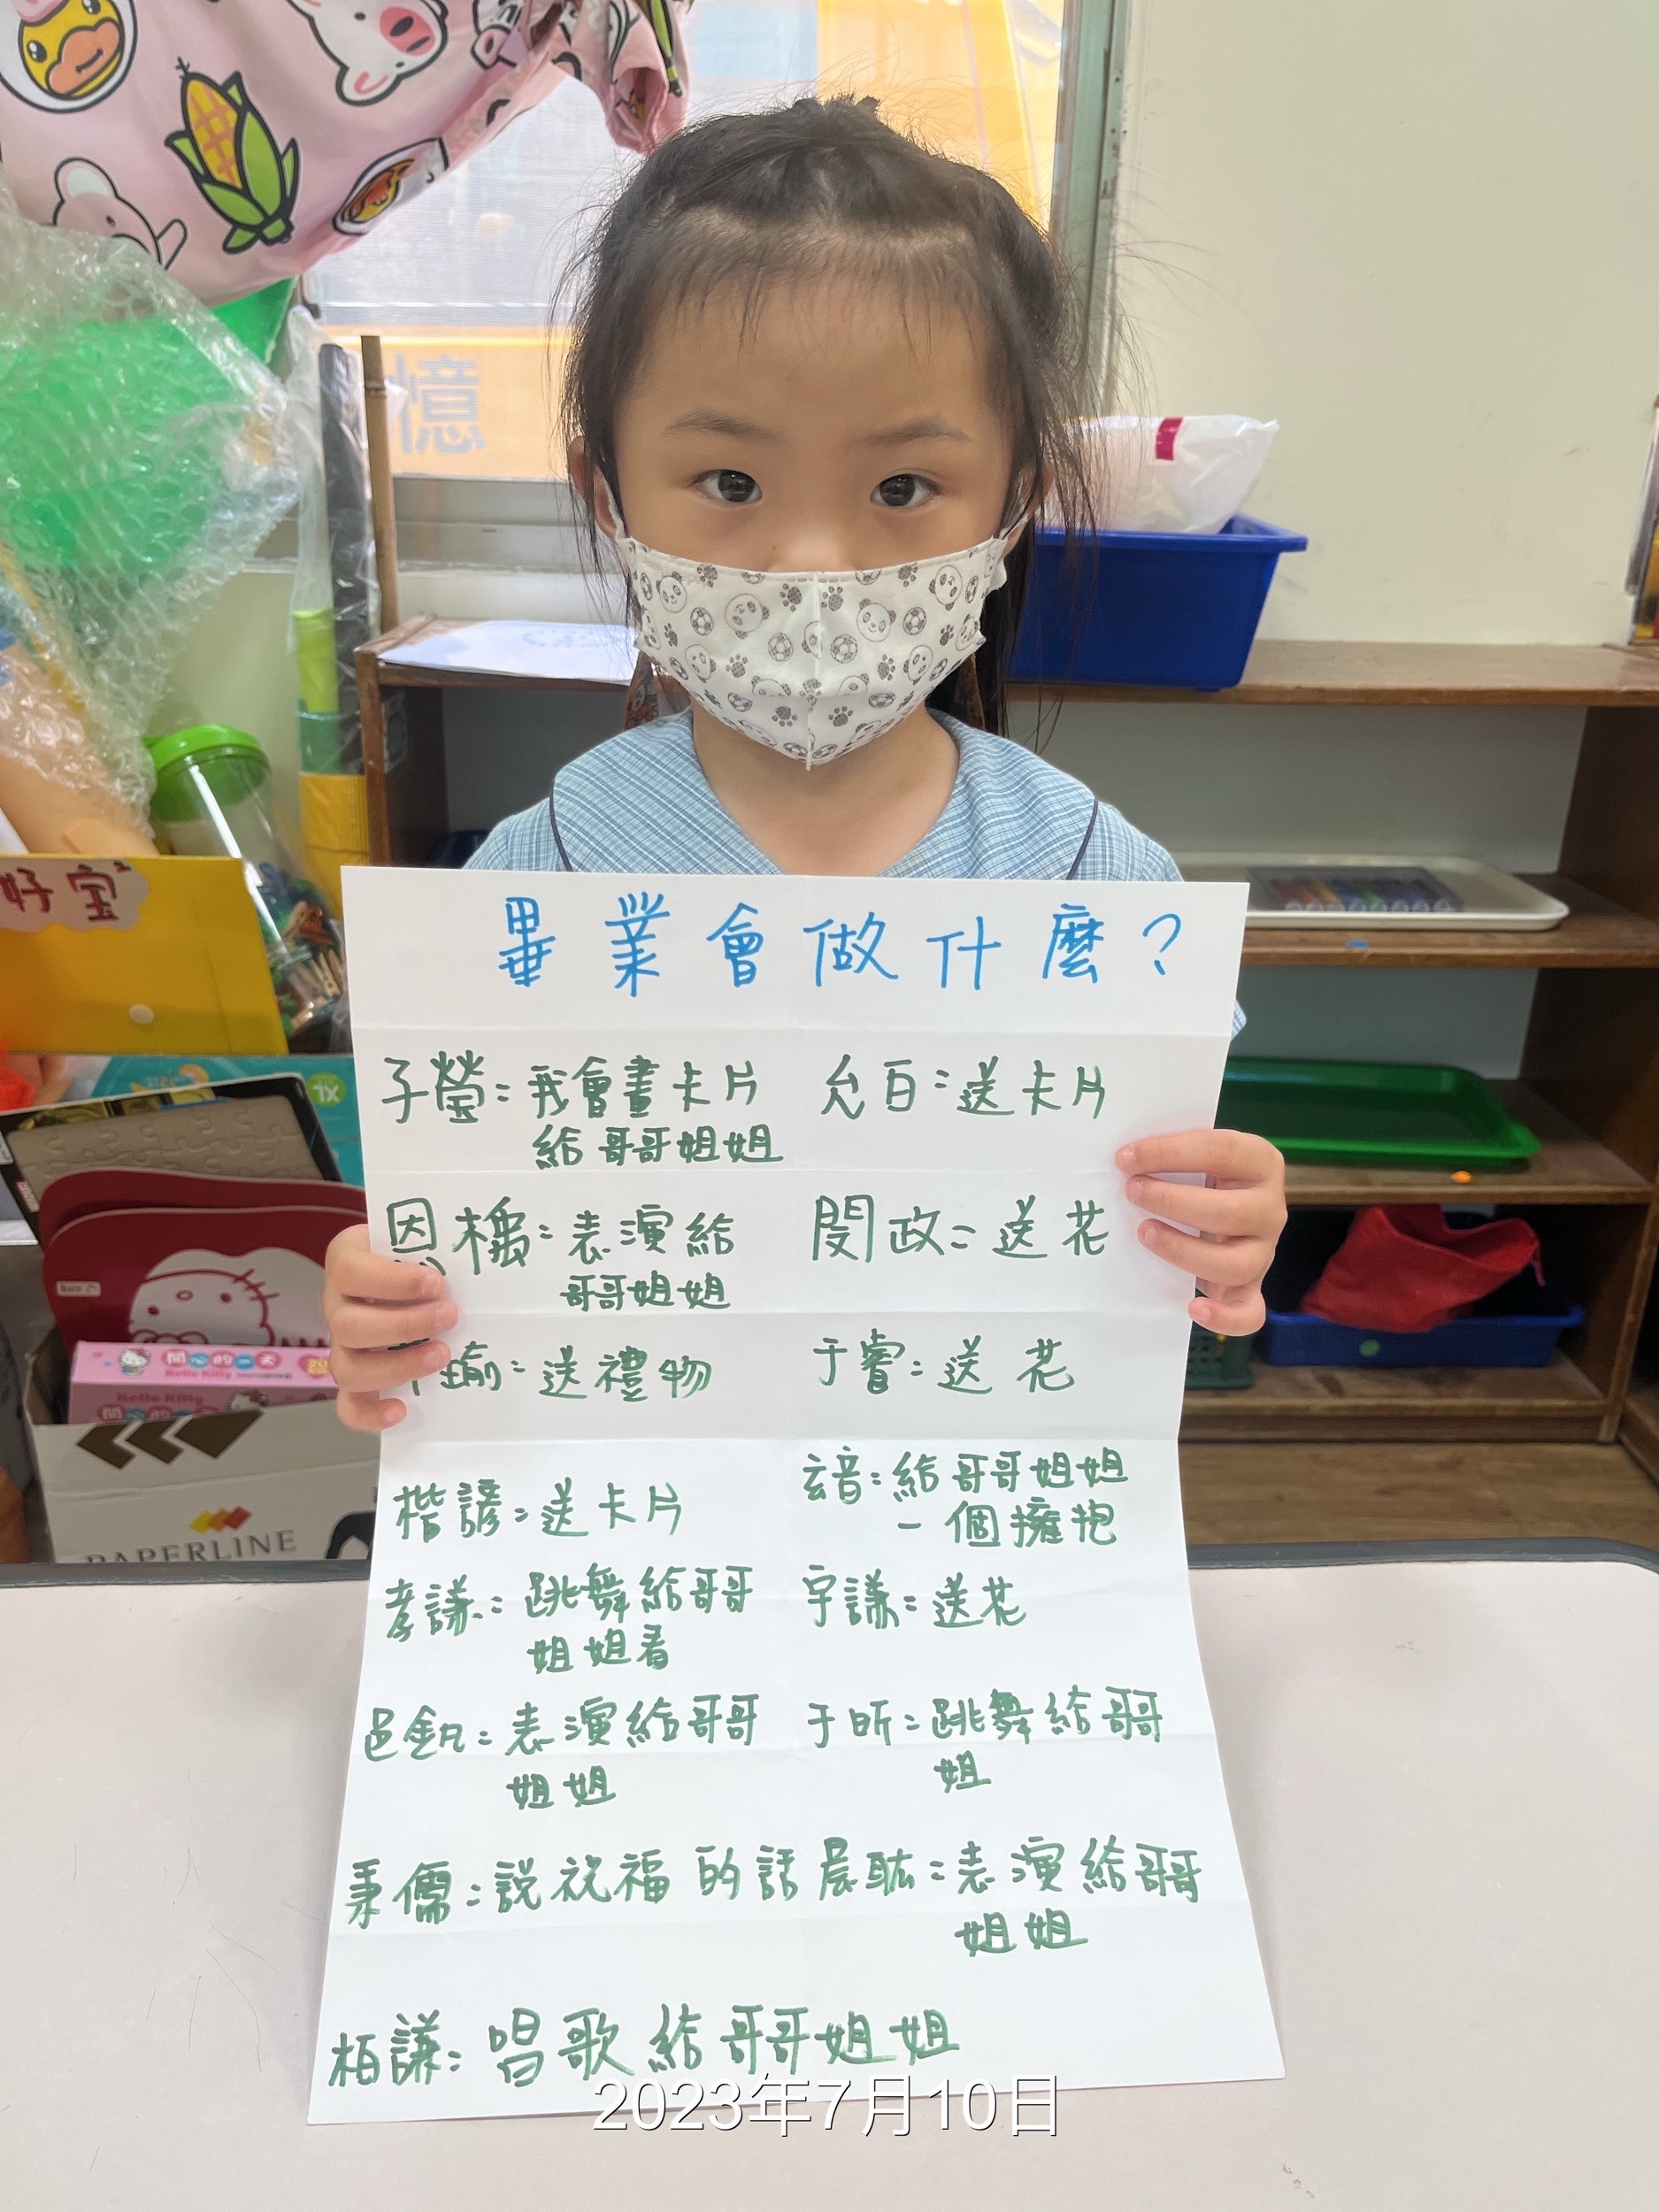 憶
好宝
畢業會做什麼？
子瑩：我會畫卡片
給哥哥姐姐
允白：送卡片
因
：表演給
哥哥姐姐
閔政：送花
瑜：送禮物
于睿：送花
楷諺：送卡片
玄音：給哥哥姐姐
一個擁抱
孝謙：跳舞給哥哥
姐姐看
宇謙：送花
邑釩：表演給哥哥
姐姐
于昕：跳舞給哥哥
姐
秉儒：說祝福的話
晨耾：表演給哥哥
姐姐
柏謙：唱歌給哥哥姐姐
開心的一天
Hello Kitty
Hello Kitty
PAPERLINE
2023年7月10日